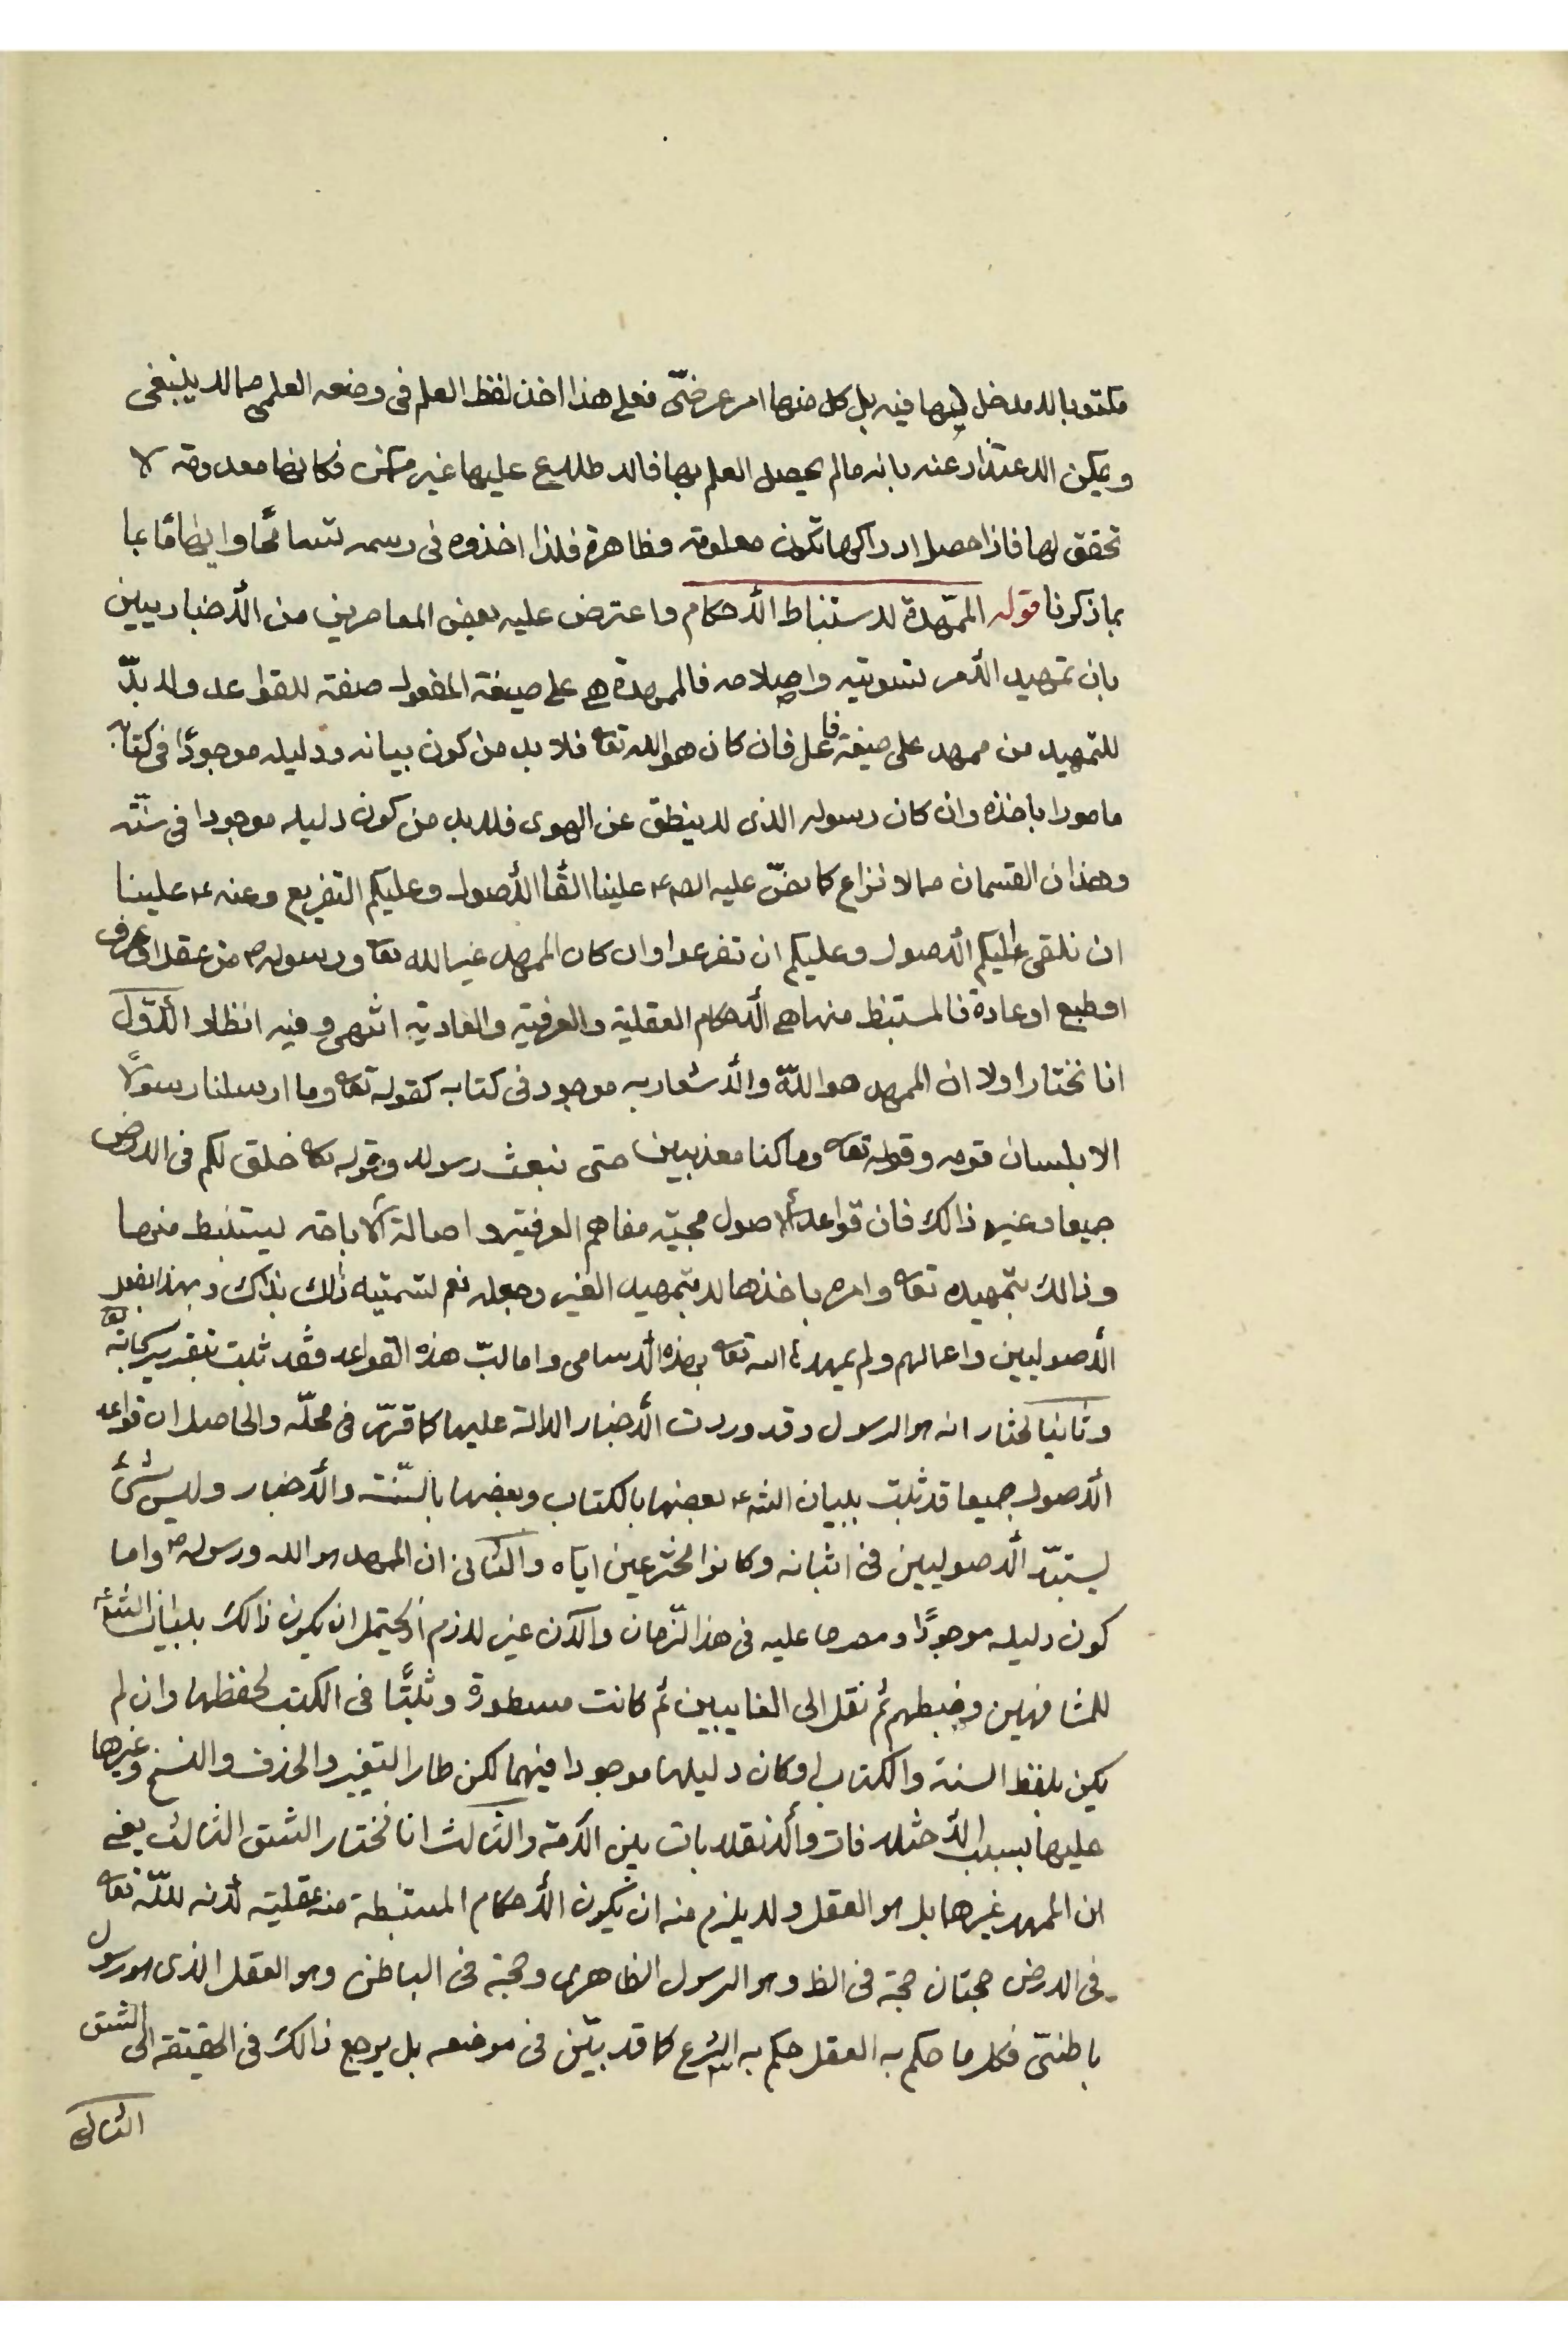 مكتوبا لا مدخل لها فيه بل كل منها امر عرضىّ فعلى هذا اخذ لفظ العلم فى وضعه العلمى مما لا ينبغى
ويمكن الاعتذار عنه بانه مالم يحصل العلم بها فالاطلاع عليها غير متمكن فكانها معدومة لا
تحقق لها فاذا حصل ادراكها تكون معلومة وظاهرة فلذا اخذوه فى رسمه تسامحًا وايضًا
بما ذكرنا قوله الممهّدة لاستنباط الأحكام واعترض عليه بعض المعاصرين من الأخباريين
بان تمهيد الأمر تسويته واصلاحه فالممهدة هى على صيغة المفعول صفة للقواعد ولا بدّ
للتمهيد من ممهد على صيغة فاعل فان كان هو الله تعا فلا بد من كون بيانه ودليله موجودًا فى كتابه
مامورا باخذه وان كان رسوله الذى لا ينطق عن الهوى فلا بد من كون دليله موجودا فى سنّته
وهذان القسمان مما لا نزاع كا نصّ عليه علينا القاالأصول وعليكم التفريع وعنه ع علينا
ان نلقى عليكم الأصول وعليكم ان تفرعوا وان كان الممهد غير الله تعا ورسوله ص من عقل او عرف
او طبع او عادة فالمستنبط منها هى الأحكام العقلية والعرفية والعادية انتهى وفيه انظار الأوّل
انا نختار اولا ان الممهد هو اللّه والأشعار به موجود فى كتابه كقوله تعا وما ارسلنا رسولًا
الا بلسان قومه وقوله تعا وما كنا معذبين حتى نبعث رسولا وقوله تعا خلق لكم فى الارض
جميعا وغير ذالك فان قواعد الأصول حجيّة مفاهم العرفية واصالة الأباحة ليستنبط منها
وذالك بتمهيده تعا وامره باخذها لا بتمهيد الغير وجعله نعم لتسميته ذلك بذاك وبهذا بفعل
الأصوليين واعمالهم ولم يمهد الله تعا بهذه الأسامى واما لبّ هذه القواعد فقد ثبت بتقديره سبحانه تعا
وثانيا نختار انه هو الرسول وقد وردت الأخبار الدالة عليها كا قرّر فى محلّه والحاصل ان قواعد
الأصول جميعا قد ثبت ببيان الشرع بعضها بالكتاب وبعضها بالسّنة والأخبار وليس شىئ
يستبدّ الأصوليين فى اثباته وكانوا مخترعين اياه والثانى ان الممهد هو الله ورسوله ص واما
كون دليله موجودًا ومصرحا عليه فى هذا الزّمان والآن غير لازم اذ يحتمل ان يكون ذالك ببيان الشرع
للمشافهين وضبطهم ثم نقل الى الغايبين ثم كانت مسطورة وثبتًا فى الكتب لحفظها وان لم
يكن بلفظ السنة والكتاب او كان دليلها موجودا فيهما لكن طار التغير والحذف والنسخ وغيرها
عليها بسبب الأختلافات والأنقلابات بين الأمة والثالث انا نختار الشق الثالث يعنى
ان الممهد غيرهما بل هو العقل ولا يلزم منه ان يكون الأحكام المستنبطة منه عقلية لأنه للّه تعا
فى الارض حجتان حجة فى الظ وهو الرسول الظاهرى وحجة فى الباطن وهو العقل الذى هو رسول
باطنىّ فكل ما حكم به العقل حكم به الشرع كا قد بيّن فى موضعه بل يرجع ذالك فى الحقيقة الى الشق
الثانى